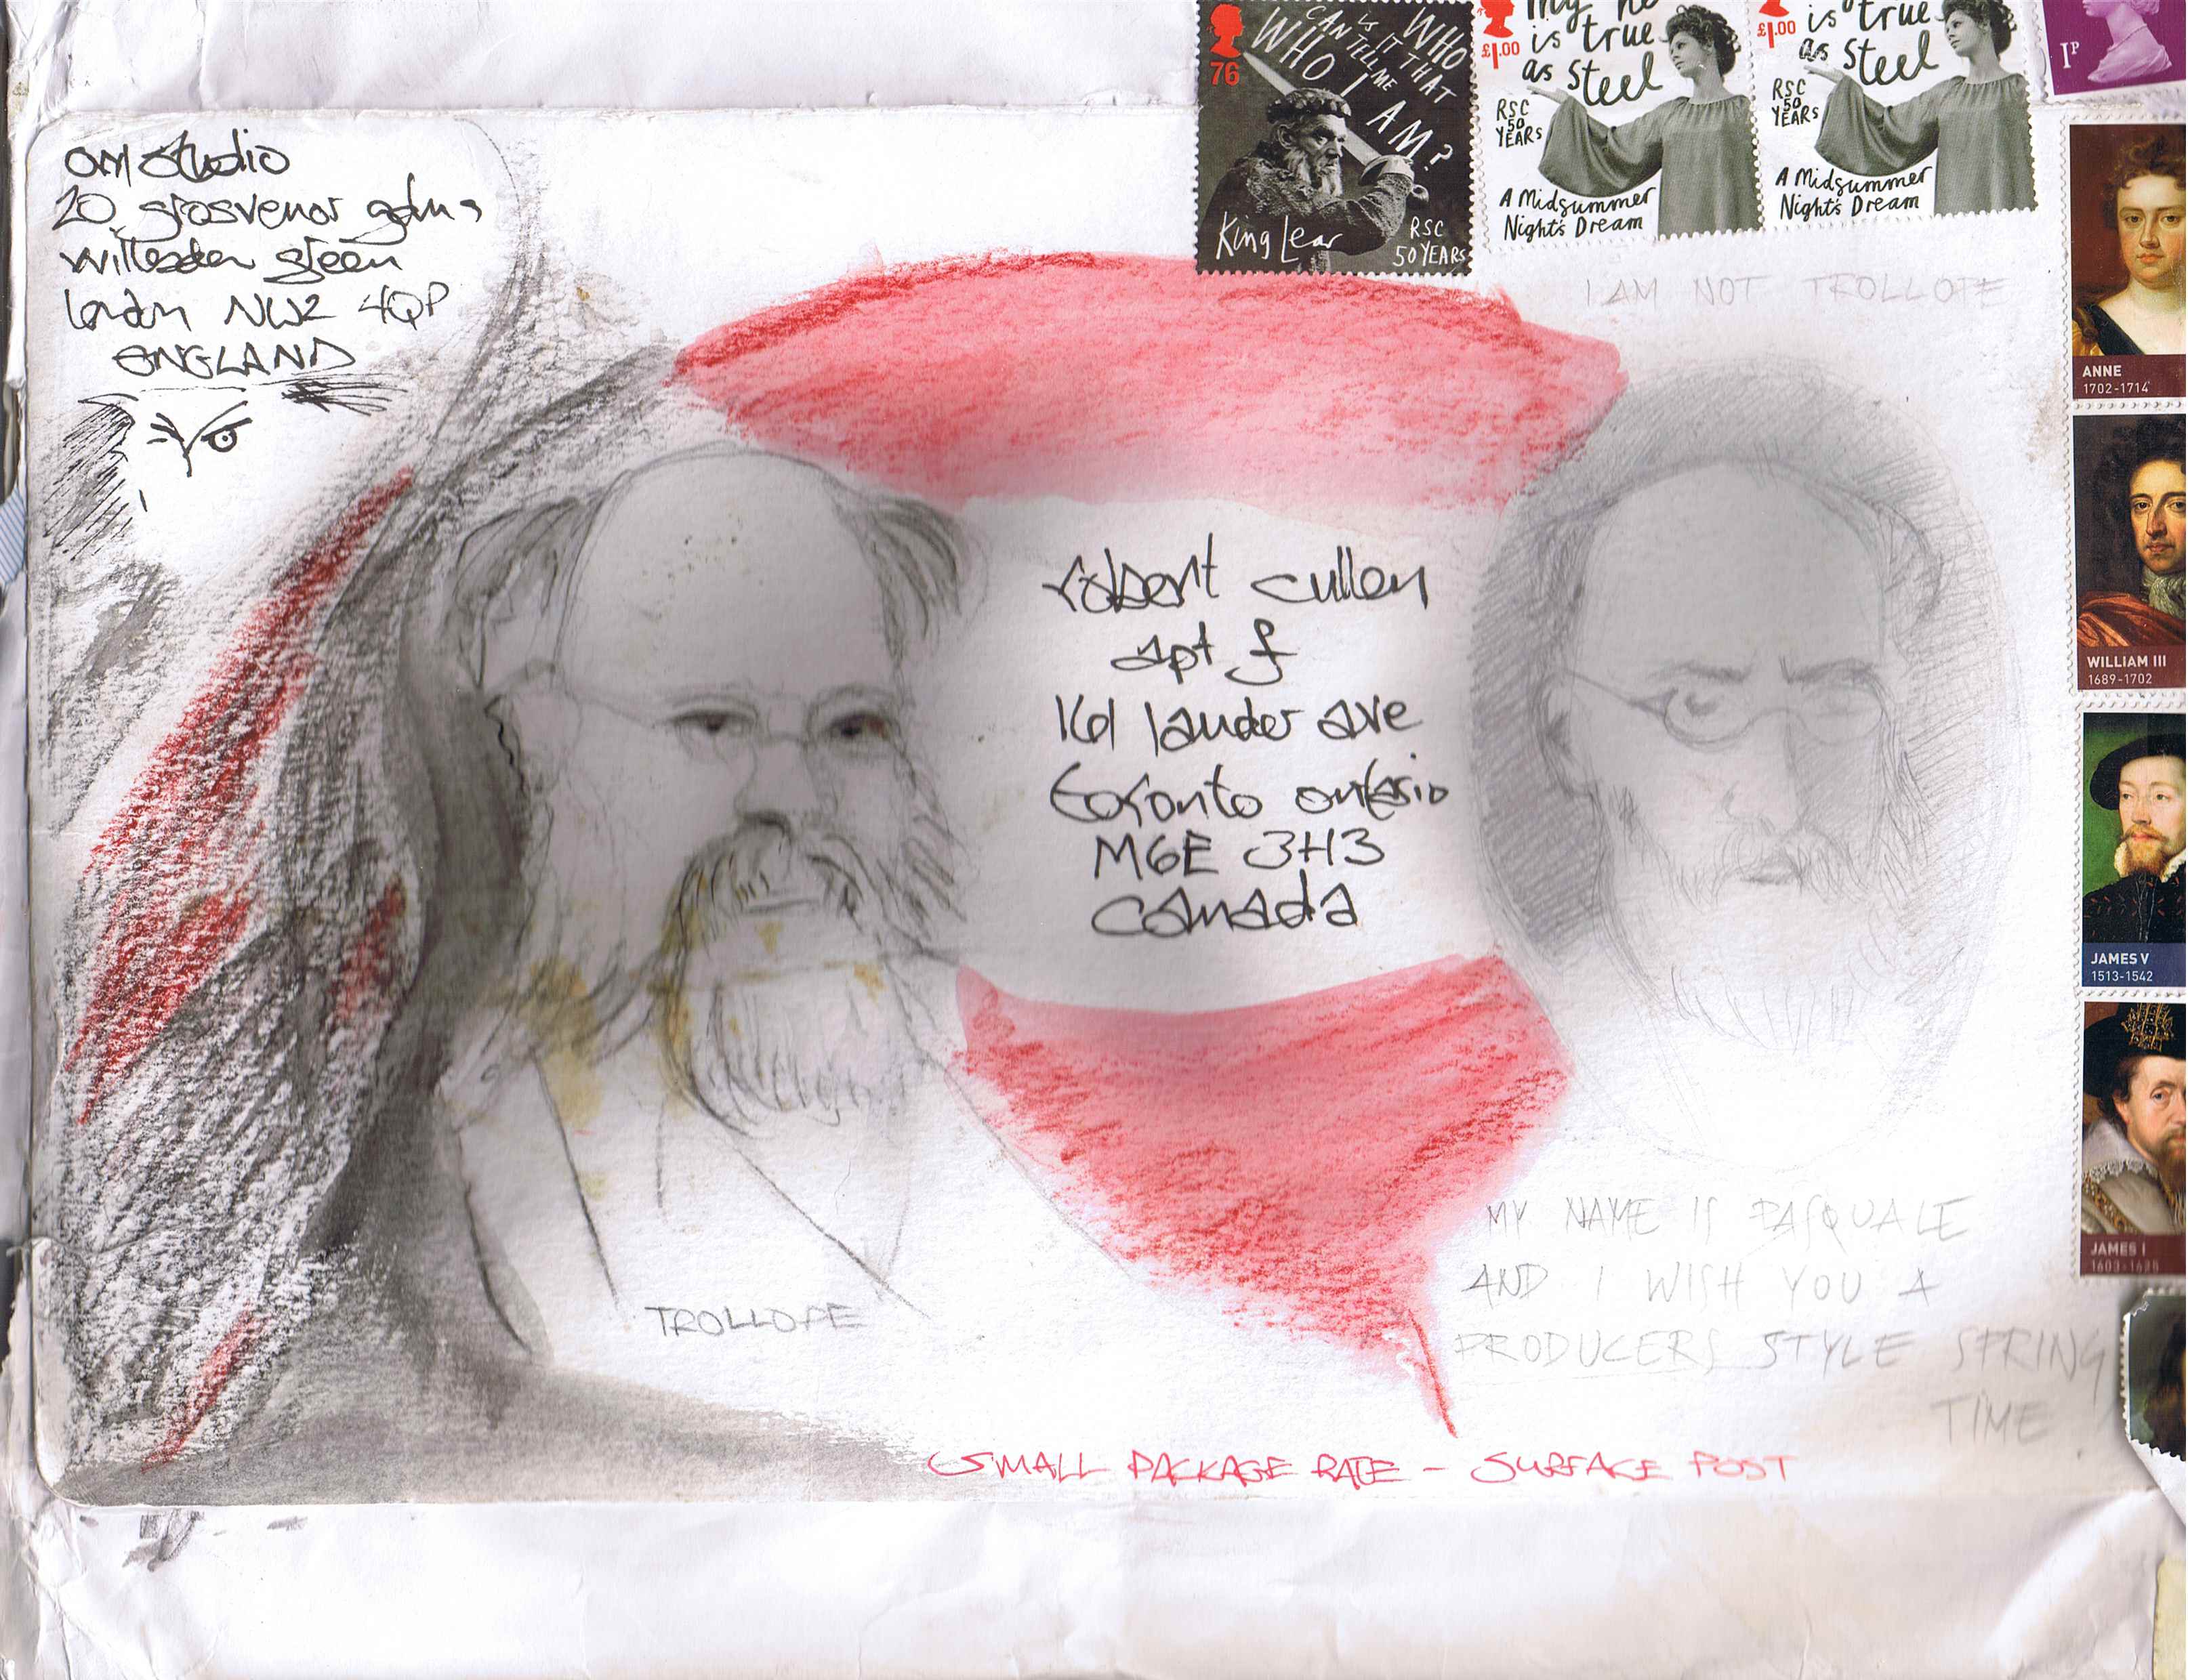 om studio
20 grosvenor gdns
willesden green
london NW2 4QP
ENGLAND
76
WHO IS IT THAT
CAN TELL ME
WHO I AM?
King Lear
RSC
50 YEARS
£1.00
my he
is true
as steel
RSC
50
YEARS
A Midsummer
Night's Dream
£1.00
is true
as steel
RSC
50
YEARS
A Midsummer
Night's Dream
1P
I AM NOT TROLLOPE
ANNE
1702-1714
WILLIAM III
1689-1702
JAMES V
1513-1542
JAMES I
1603-1625
robert cullen
apt f
161 lauder ave
toronto ontario
M6E 3H3
canada
TROLLOPE
MY NAME IS PASQUALE
AND I WISH YOU A
PRODUCERS STYLE SPRING
TIME!
SMALL PACKAGE RATE - SURFACE POST